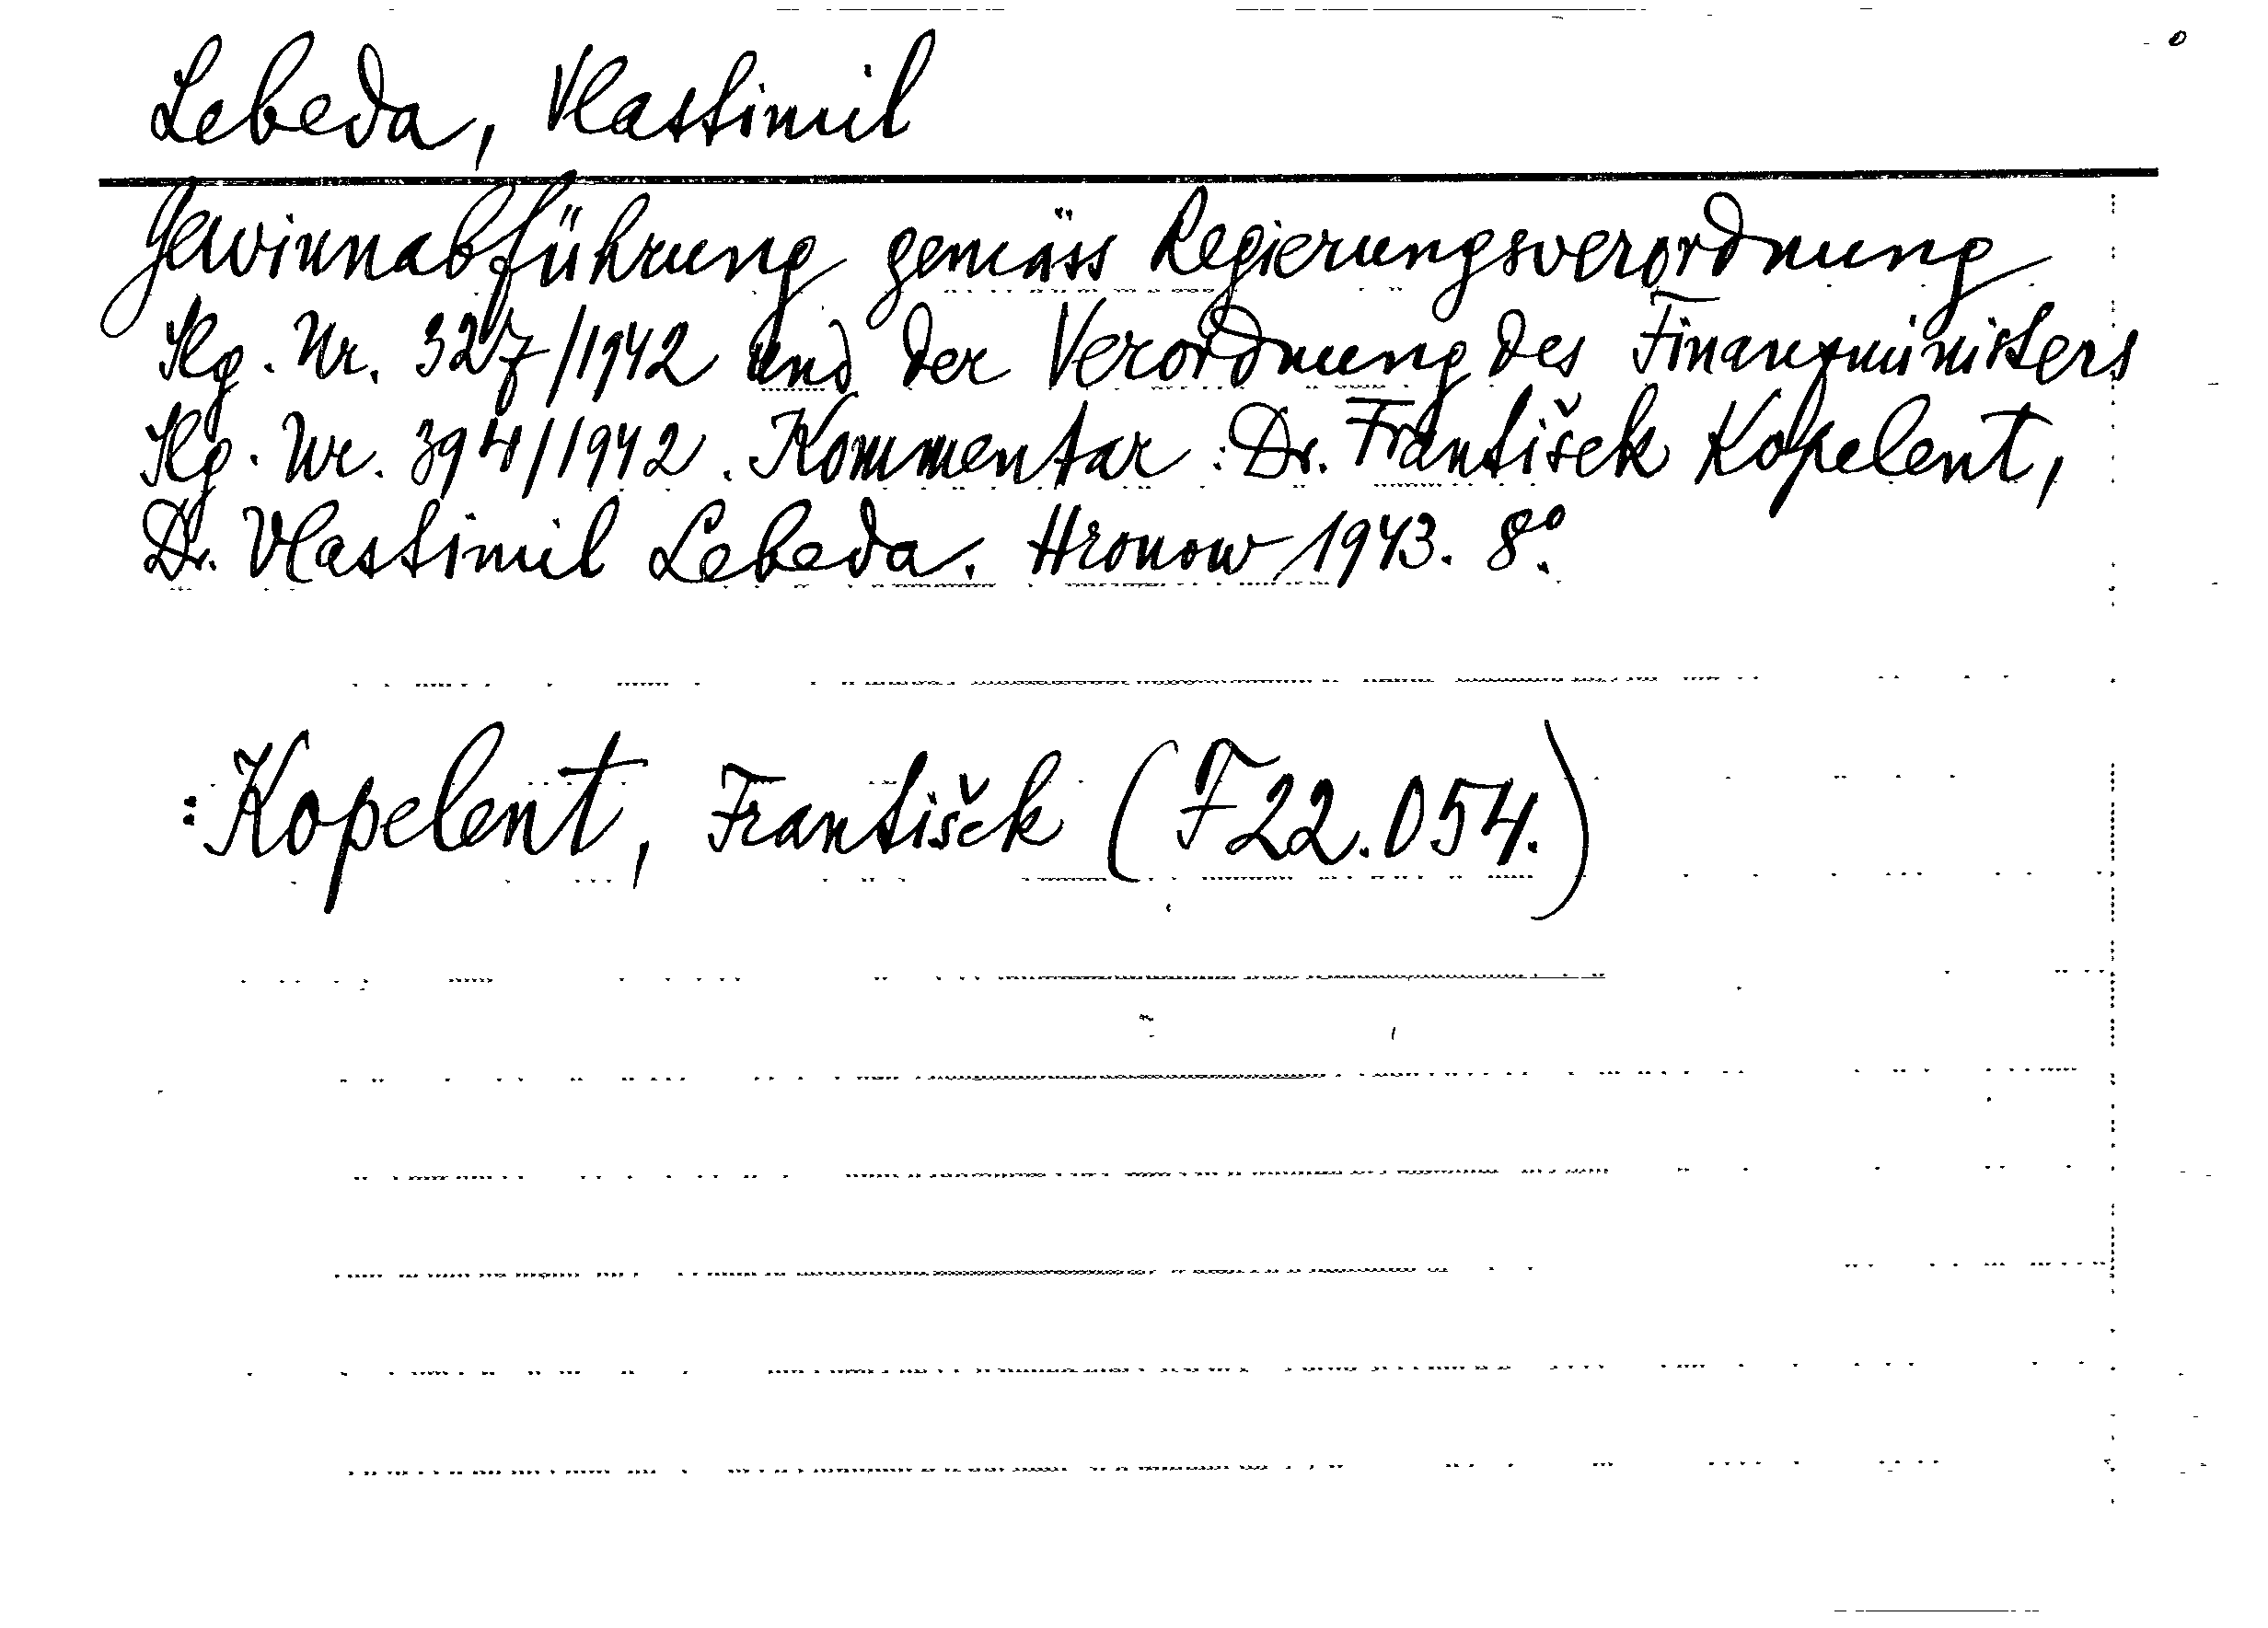 Lebeda, Vlastimil
Gewinnabführung gemäss Regierungsverordnung
Slg. Nr. 327/1942 und der Verordnung des Finanzministers
Slg. Nr. 394/1942. Kommentar: Dr. František Kopelent,
Dr. Vlastimil Lebeda. Hronow 1943. 8°.
:Kopelent, František (F22.054.)